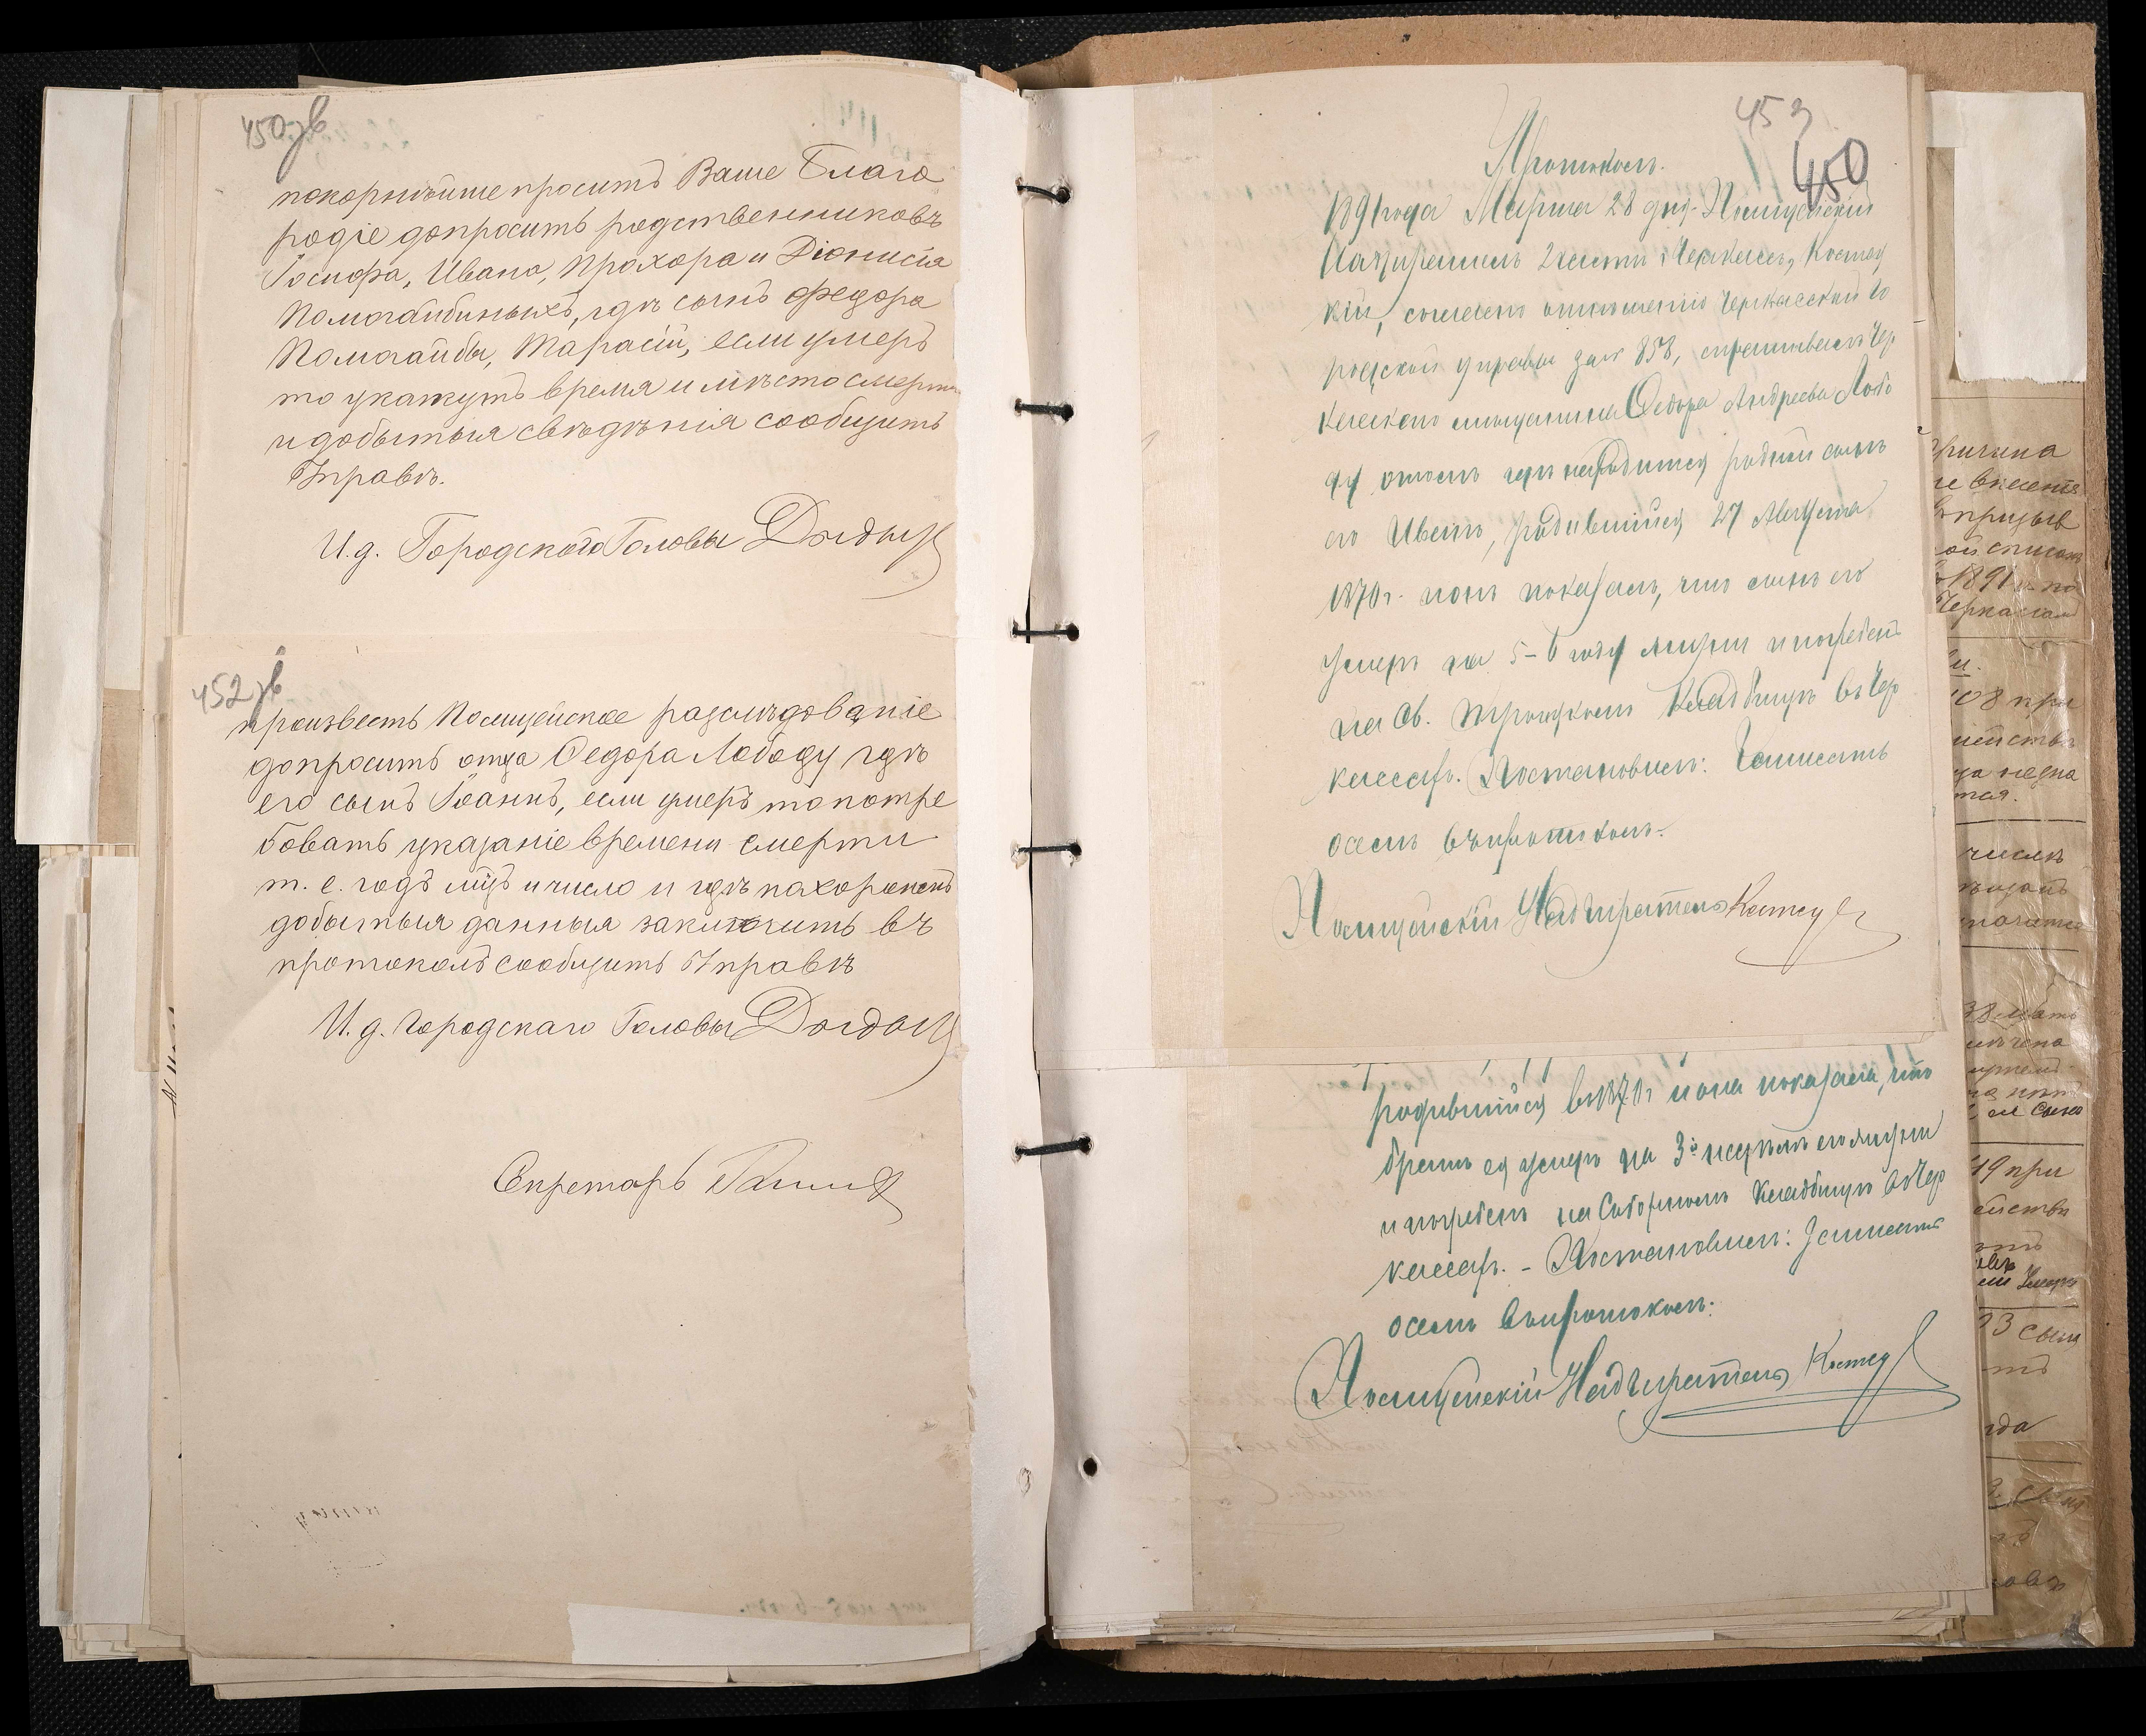 450зв
покорнѣйше проситъ Ваше Благо
родіе допросить родственниковъ
Іосифа, Ивана, Прохора и Діонисія
Помогайбиныхъ, гдѣ сынъ Федора
Помогайбы, Тарасій, если умеръ
то укажутъ время и мѣсто смерти
и добытыя свѣдѣнія сообщить
Управѣ.
И.д. Городского Головы
452зв
произвесть Полицейское разслѣдованіе
допросить отца Ѳедора Лободу гдѣ
его сынъ Іоаннъ, если умеръ то потре
бовать указаніе времени смерти
т. е. годъ мцъ и число и гдѣ похороненъ
добытыя данныя заключить въ
протоколъ сообщить Управѣ
И.д. Городскаго Головы
Секретарь
453
450
Протоколъ.
1891 года Марта 28 дня. Полицейскій
Надзиратель 2 части г. Черкассъ, Костец
кій, согласно отношенію Черкасской Го
родской управы за № 858, спрашивалъ Чер
касскаго мѣщанина Ѳедора Андреева Лобо
ду о томъ гдѣ находится родной сынъ
его Иванъ, родившійся 27 Августа
1870 г. и онъ показалъ, что сынъ его
умеръ на 5-6 году жизни и погребенъ
на Св. Троицкомъ Кладбищѣ въ Чер
кассахъ. Постановилъ: Записать
о семъ въ протоколъ.
Полицейскій Надзиратель
родившійся въ 1870 г и она показала, что
братъ ея умеръ на 3й недѣлѣ его жизни
и погребенъ на Соборномъ Кладбищѣ въ Чер
кассахъ. - Постановилъ: Записать
о семъ въ протоколъ:
Полицейскій Надзиратель
причина
призыв
1891 г. по
108 при
числѣ
19 при
93 сынъ